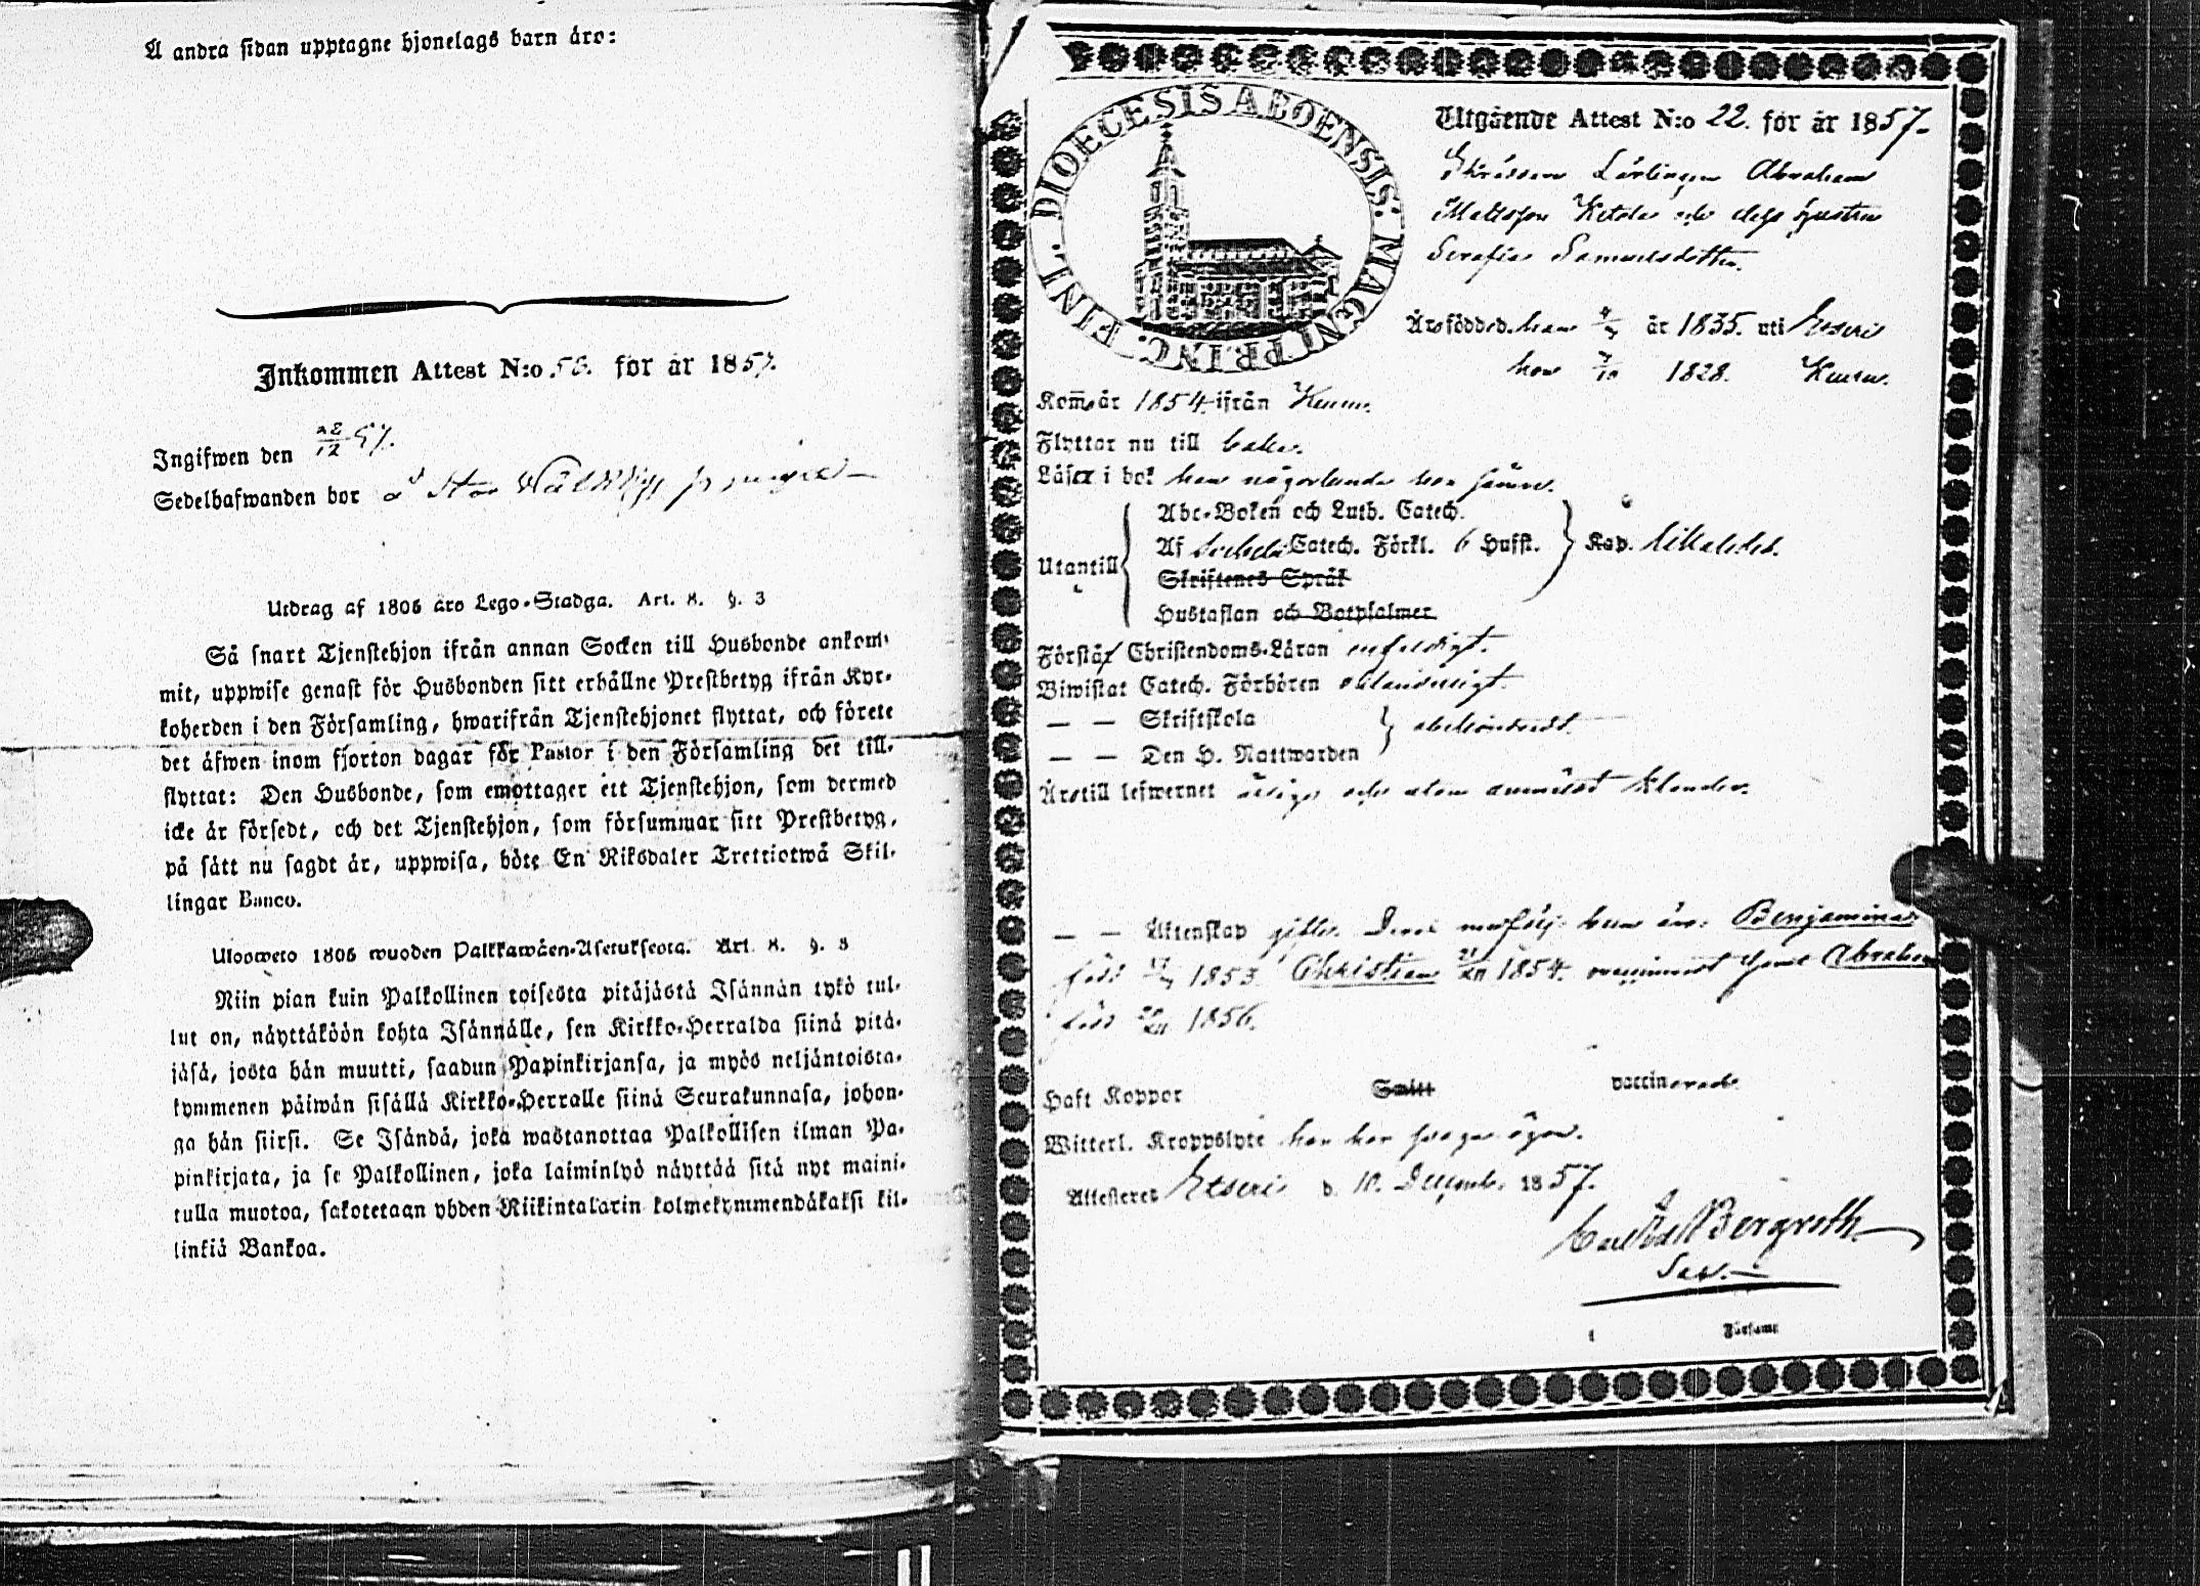 Å andra sidan upptagne hjonelags barn äro:
Inkommen Attest N:o 56. för år 1857.
Ingifwen den 28/12 57.
Sedelhafwanden bor å Stor
Utdrag af 1805 års Lego-Stadga. Art. 8. §. 3
Så snart Tjenstehjon ifrån annan Socken till Husbonde ankom-
mit, uppwise genast för Husbonden sitt erhållne Prestbetyg ifrån Kyr-
koherden i den Församling, hwarifrån Tjenstehjonet flyttat, och förete
det äfwen inom fjorton dagar för Pastor i den Församling det till-
flyttat: Den Husbonde, som emottager ett Tjenstehjon, som dermed
icke är försedt, och det Tjenstehjon, som försummar sitt Prestbetyg,
på sätt nu sagdt är, uppwisa, böte En Riksdaler Trettiotwå Skil-
lingar Banco.
Ulosweto 1805 wuoden Palkkawäen-Asetuksesta. Art. 8. §. 3
Niin pian kuin Palkollinen toisesta pitäjästä Isännän tykö tul-
lut on, näyttäköön kohta Isännälle, sen Kirkko-Herralda siinä pitä-
jäsä, josta hän muutti, saadun Papinkirjansa, ja myös neljäntoista-
kymmenen päiwän sisällä Kirkko-Herralle siinä Seurakunnasa, johon-
ga hän siirsi. Se Isändä, joka wastanottaa Palkollisen ilman Pa-
pinkirjata, ja se Palkollinen, joka laiminlyö näyttää sitä nyt maini-
tulla muotoa, sakotetaan yhden Riikintalarin kolmekymmendäkaksi kil-
linkiä Bankoa.
DIOECESIS ABOENSIS. MAGNI PRINC. FINL.
Utgående Attest N:o 22. för år 1857.
Lärlingen Abraham
Mattsson och dess hustru
Serafia Samuelsdotter.
Äro födde d. han är 1835. uti Etseri
hon 7/10 1828. Keuru.
Kom år 1854. ifrån Keuru.
Flyttar nu till
Läser i bok han någorlunda hon
Utantill
Abc-Boken och Luth. Catech.
Af Catech. Förkl. 6 Hufst.
Skriftenes Språk
Hustaflan och Botpsalmer
Kap.
Förstår Christendoms-Läran enfaldigt.
Biwistat Catech. Förhören
— — Skriftskola
— — Den H. Nattwarden
obehindradt.
Äro till lefwernet ärlige och utan anmärkt klander.
— — Äktenskap gifte. Deras barn äro: Benjamina
född 1853. Christian 1854. Abraham
född 1856.
Haft Koppor Smitt vaccinerade
Witterl. Kroppslyte han har
Attesteres Etseri d. 10. Decemb. 1857.
Bergroth
i Församl.